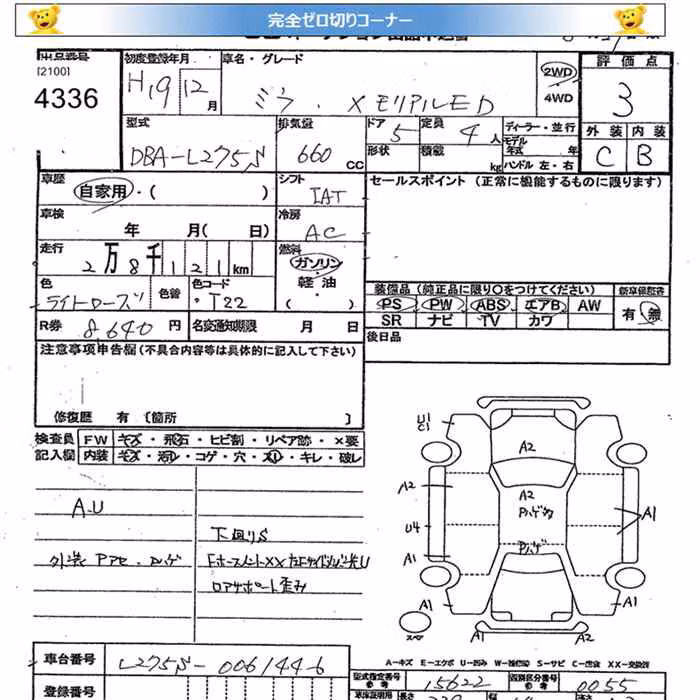 完全ゼロ切りコーナー
出品番号
[2100]
4336
初度登録年月
H19 12 月
車名・グレード
ミラ・Xメモリアル ED
2WD
4WD
評価点
3
外装 内装
C B
型式
DBA-L275S
排気量
660 cc
ドア 5
形状
定員 4 人
積載 kg
ディーラー・並行
モデル年式 年
ハンドル 左・右
車歴
自家用・( )
シフト
IAT
セールスポイント (正常に機能するものに限ります)
車検
年 月( 日)
冷房
AC
走行
2万8千121km
燃料
ガソリン
軽油
( )
色
ライトローズ
色替
色コード
T22
装備品 (純正品に限り○をつけてください)
PS PW ABS エアB AW
SR ナビ TV カワ
新車保証書
有・無
R券 8,640 円
名変通知期限 月 日
後日品
注意事項申告欄 (不具合内容等は具体的に記入して下さい)
修復歴 有 〔箇所 〕
検査員
記入欄
FW キズ・飛石・ヒビ割・リペア跡・×要
内装 キズ・汚レ・コゲ・穴・スレ・キレ・破レ
A・U
下廻りS
外装 Pアセ・ハゲ
ロアサポート歪み
U1
C1
A2
A2
A2
Pハゲ
A1
U4
A1
A1
A1
スペア
A-キズ E-エクボ U-凹み S-サビ C-腐食 XX-交換済
車台番号
L275S-0061446
型式指定番号
参考
15622
類別区分番号
参考
0055
登録番号
長さ